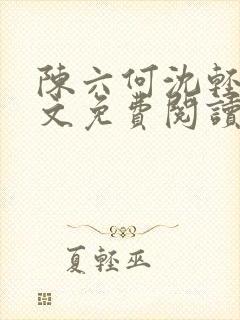 陳六何沈輕
文免費閱讀
夏輕巫